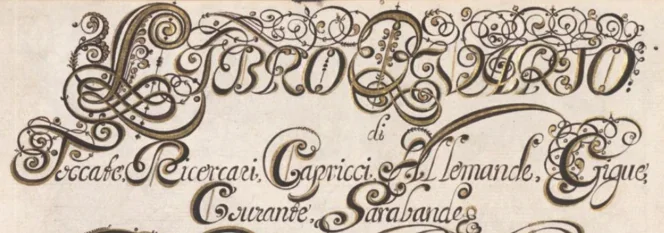 LIBRO QVARTO
di
Toccate, Ricercari, Capricci, Allemande, Gigue,
Courante, Sarabande